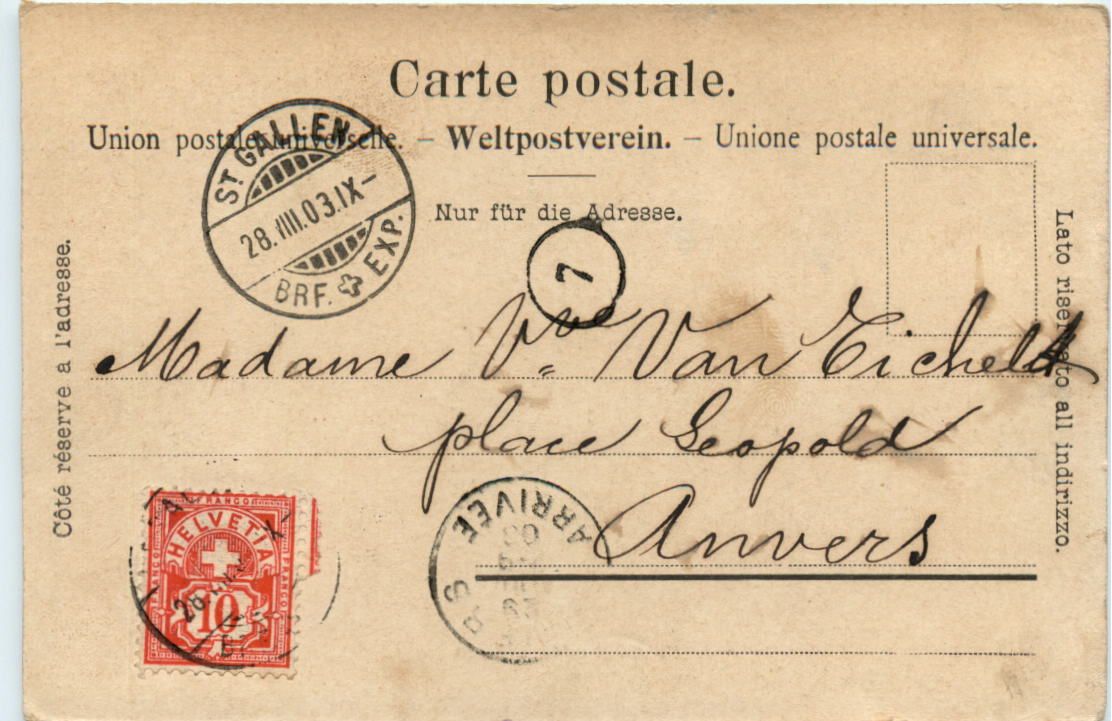 Carte postale.
Union postale universelle. – Weltpostverein. – Unione postale universale.
Nur für die Adresse.
Côté réserve a l'adresse.
Lato riservato all indirizzo.
ST GALLEN
28.VIII.03.IX–
BRF. EXP.
7
Madame Vve Van Tichelt
place Leopold
Anvers
FRANCO
HELVETIA
10
FRANCO
FRANCO
ARRIVEE
03